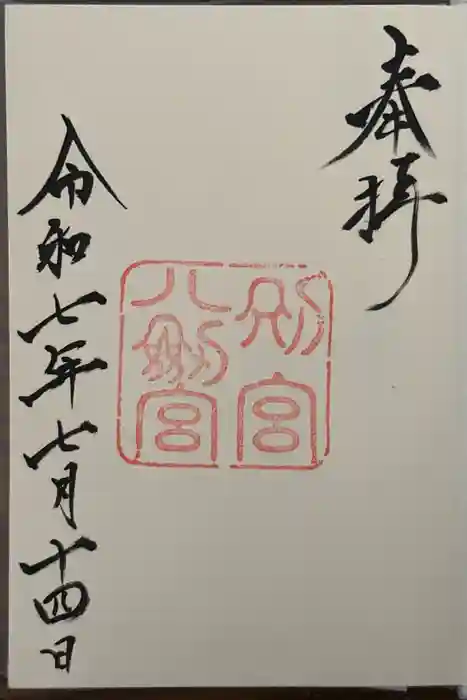 奉拝
別宮
八剱宮
令和七年七月十四日